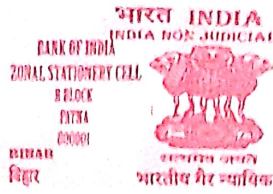 भारत INDIA
INDIA NON JUDICIAL
BANK OF INDIA
ZONAL STATIONERY CELL
B BLOCK
PATNA
BIHAR
बिहार
सत्यमेव जयते
भारतीय गैर न्यायिक